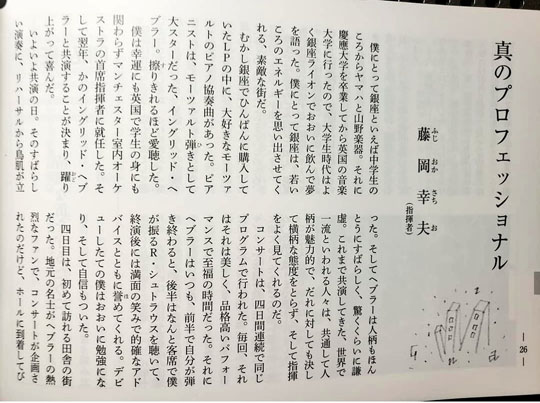 真のプロフェッショナル
藤岡幸夫
ふじおかさちお
(指揮者)
僕にとって銀座といえば中学生の
ころからヤマハと山野楽器。それに
慶應大学を卒業してから英国の音楽
大学に行ったので、大学生時代はよ
く銀座ライオンでおおいに飲んで夢
を語った。僕にとって銀座は、若い
ころのエネルギーを思い出させてく
れる、素敵な街だ。
むかし銀座でひんぱんに購入して
いたLPの中に、大好きなモーツァ
ルトのピアノ協奏曲があった。ピア
ニストは、モーツァルト弾きとして
大スターだった、イングリッド・ヘ
ブラー。擦りきれるほど愛聴した。
僕は幸運にも英国で学生の身にも
関わらずマンチェスター室内オーケ
ストラの首席指揮者に就任した。そ
して翌年、かのイングリッド・ヘブ
ラーと共演することが決まり、躍り
上がって喜んだ。
いよいよ共演の日。そのすばらし
い演奏に、リハーサルから鳥肌が立
った。そしてヘブラーは人柄もほん
とうにすばらしく、驚くくらいに謙
虚。これまで共演してきた、世界で
一流といわれる人々は、共通して人
柄が魅力的で、だれに対しても決し
て横柄な態度をとらず、そして指揮
をよく見てくれるのだ。
コンサートは、四日間連続で同じ
プログラムで行われた。毎回、それ
はそれは美しく、品格高いパフォー
マンスで至福の時間だった。それに
ヘブラーはいつも、前半で自分が弾
き終わると、後半はなんと客席で僕
が振るR・シュトラウスを聴いて、
終演後には満面の笑みで的確なアド
バイスとともに誉めてくれる。デビ
ューしたての僕はおおいに勉強にな
り、そして自信もついた。
四日目は、初めて訪れる田舎の街
だった。地元の名士がヘブラーの熱
烈なファンで、コンサートが企画さ
れたのだけど、ホールに到着してび
― 26 ―